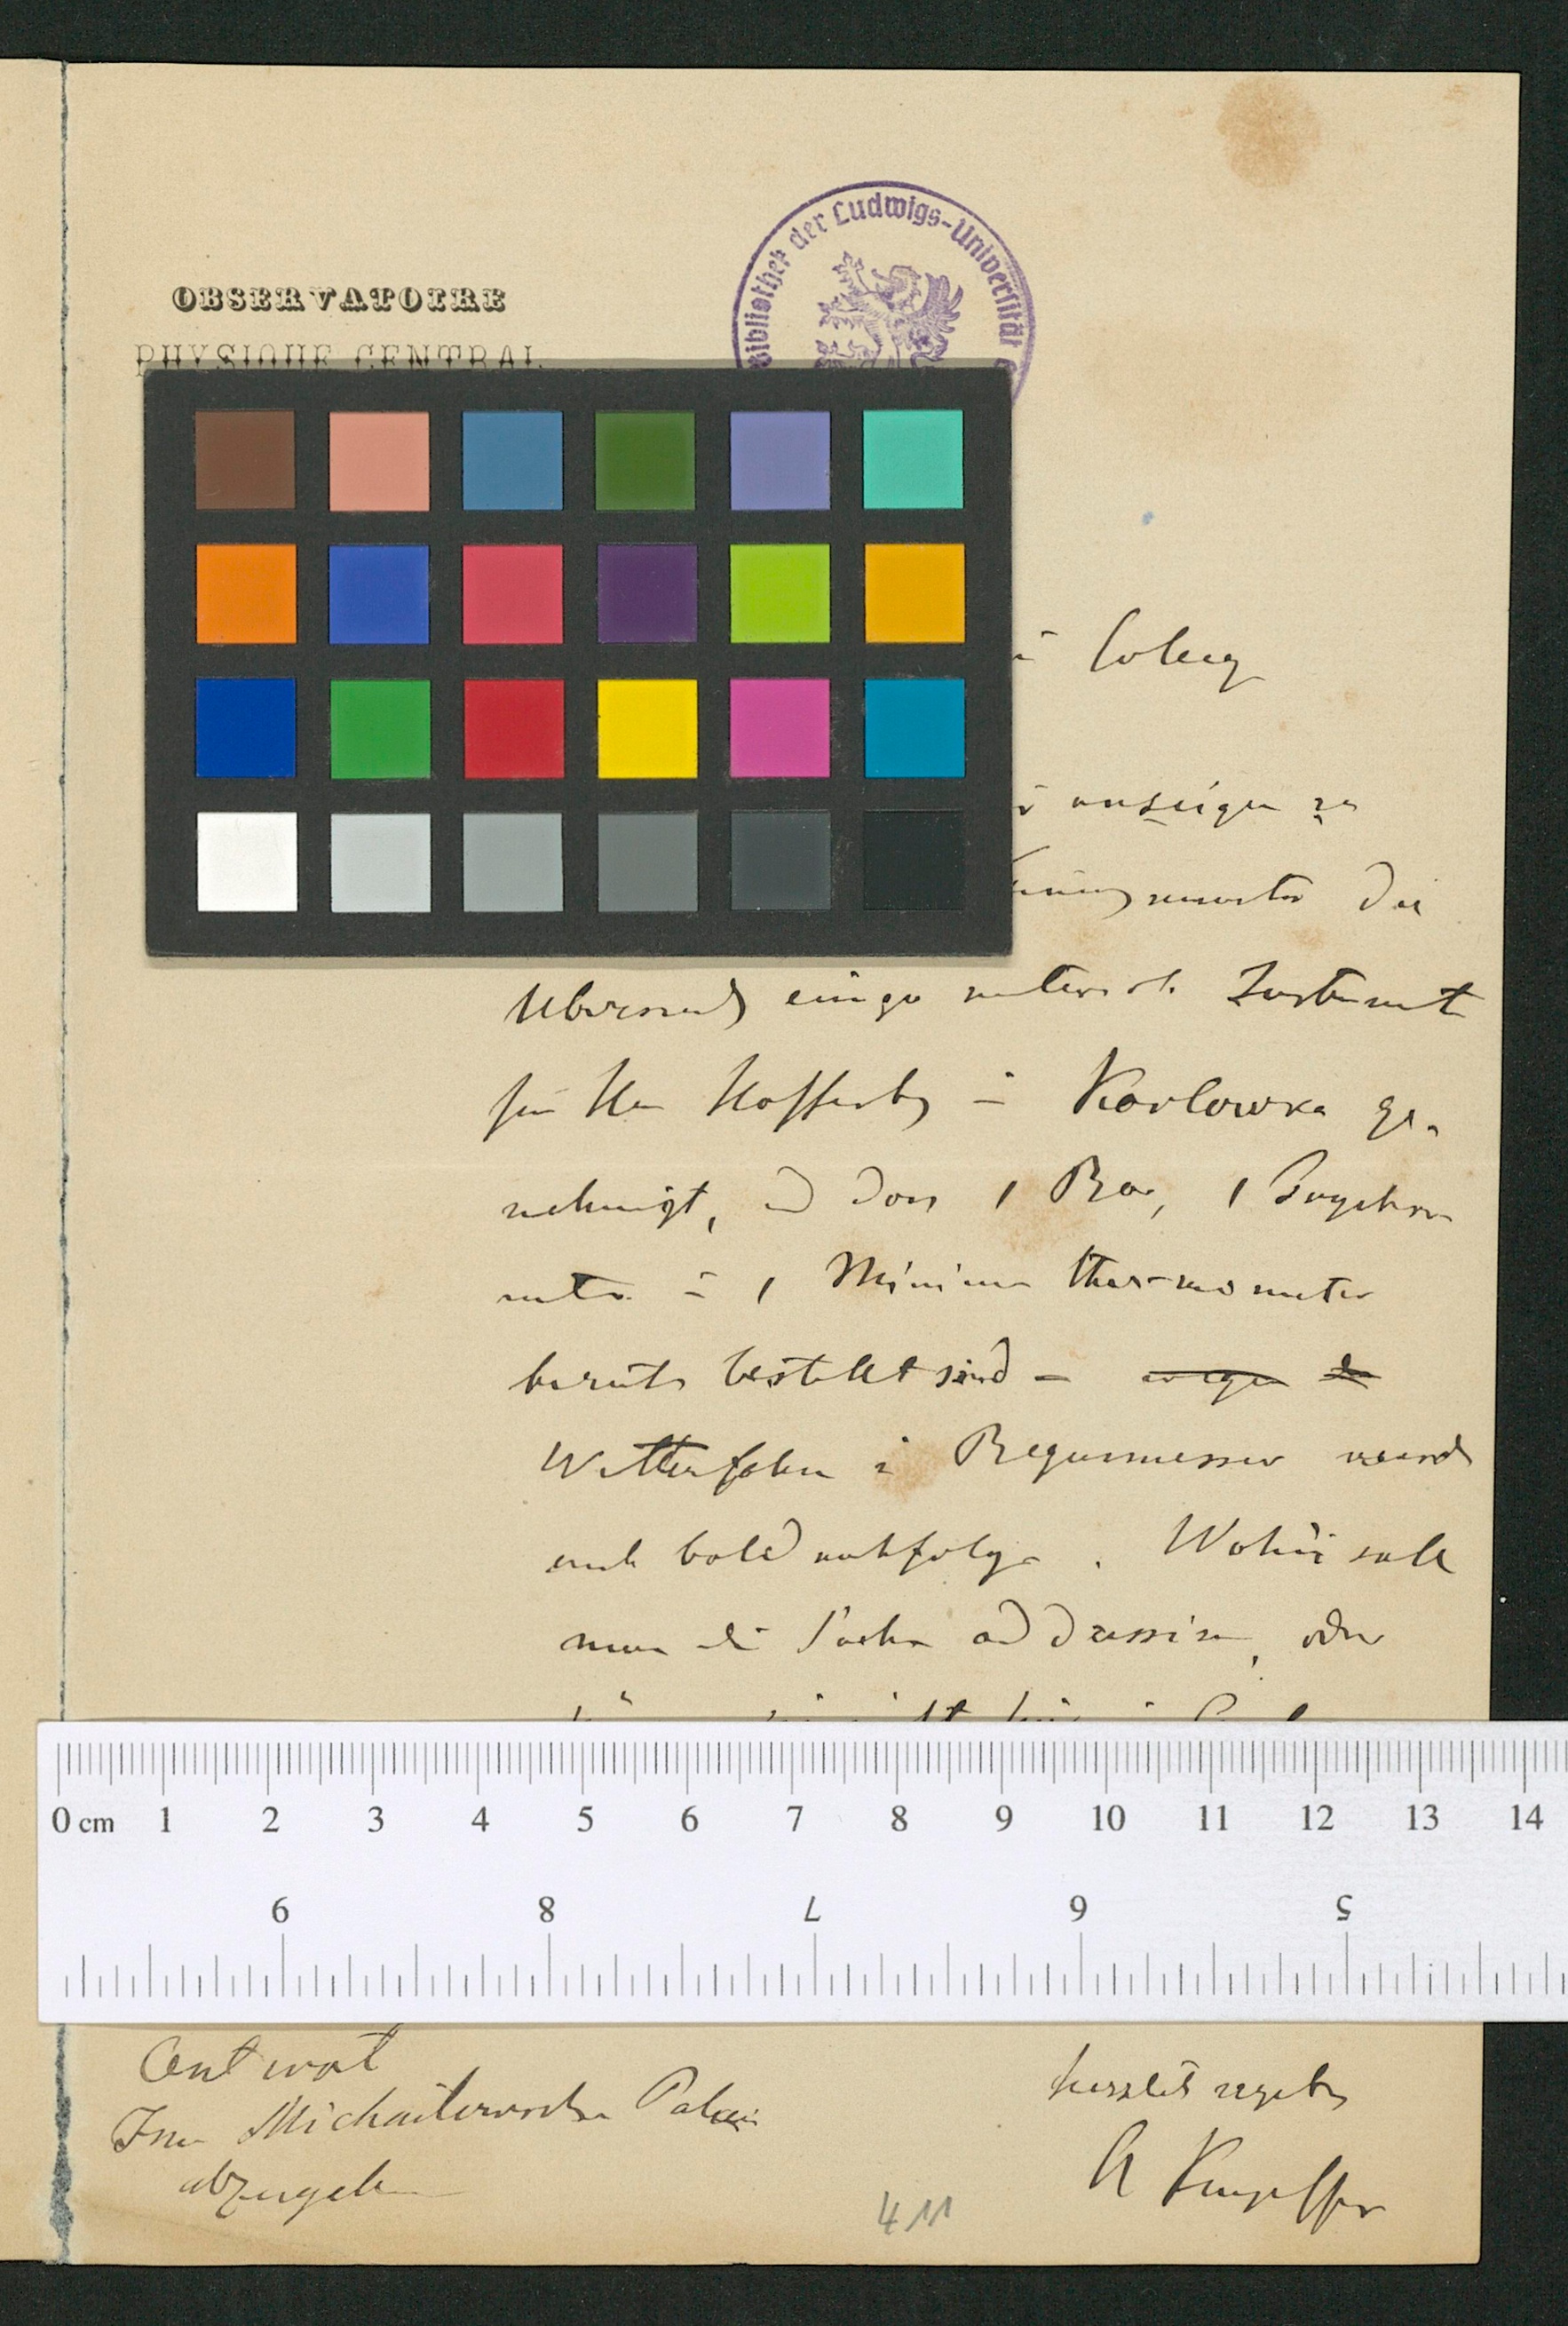 OBSERVATOIRE
PHYSIQUE CENTRAL
Bibliothek der Ludwigs-Universität
Colleg
anzeigen zu
die
Übersend einiger meteorol. Instrument
für Hrn Hofferby in Karlowka ge-
nehmigt, u dass 1 Bar, 1 Psychro
meter u 1 Minimum thermometer
bereits bestellt sind - wegen
Wetterfahn u Regenmesser werd
auch bald nachfolgen. Wohin soll
man die Sachen addressiren, oder
0 cm 1 2 3 4 5 6 7 8 9 10 11 12 13 14
9 8 7 6 5
Antwort
Im Michailowschen Palais
abzugeben
ergeben
A Kupffer
411